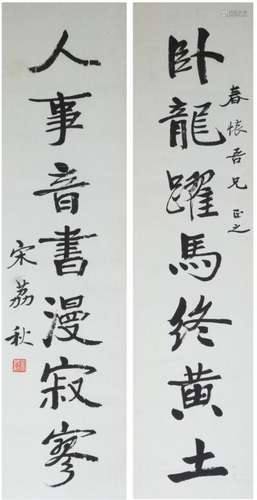 卧龍躍馬終黄土
春帳吾兄 正之
人事音書漫寂寥
宋荔秋